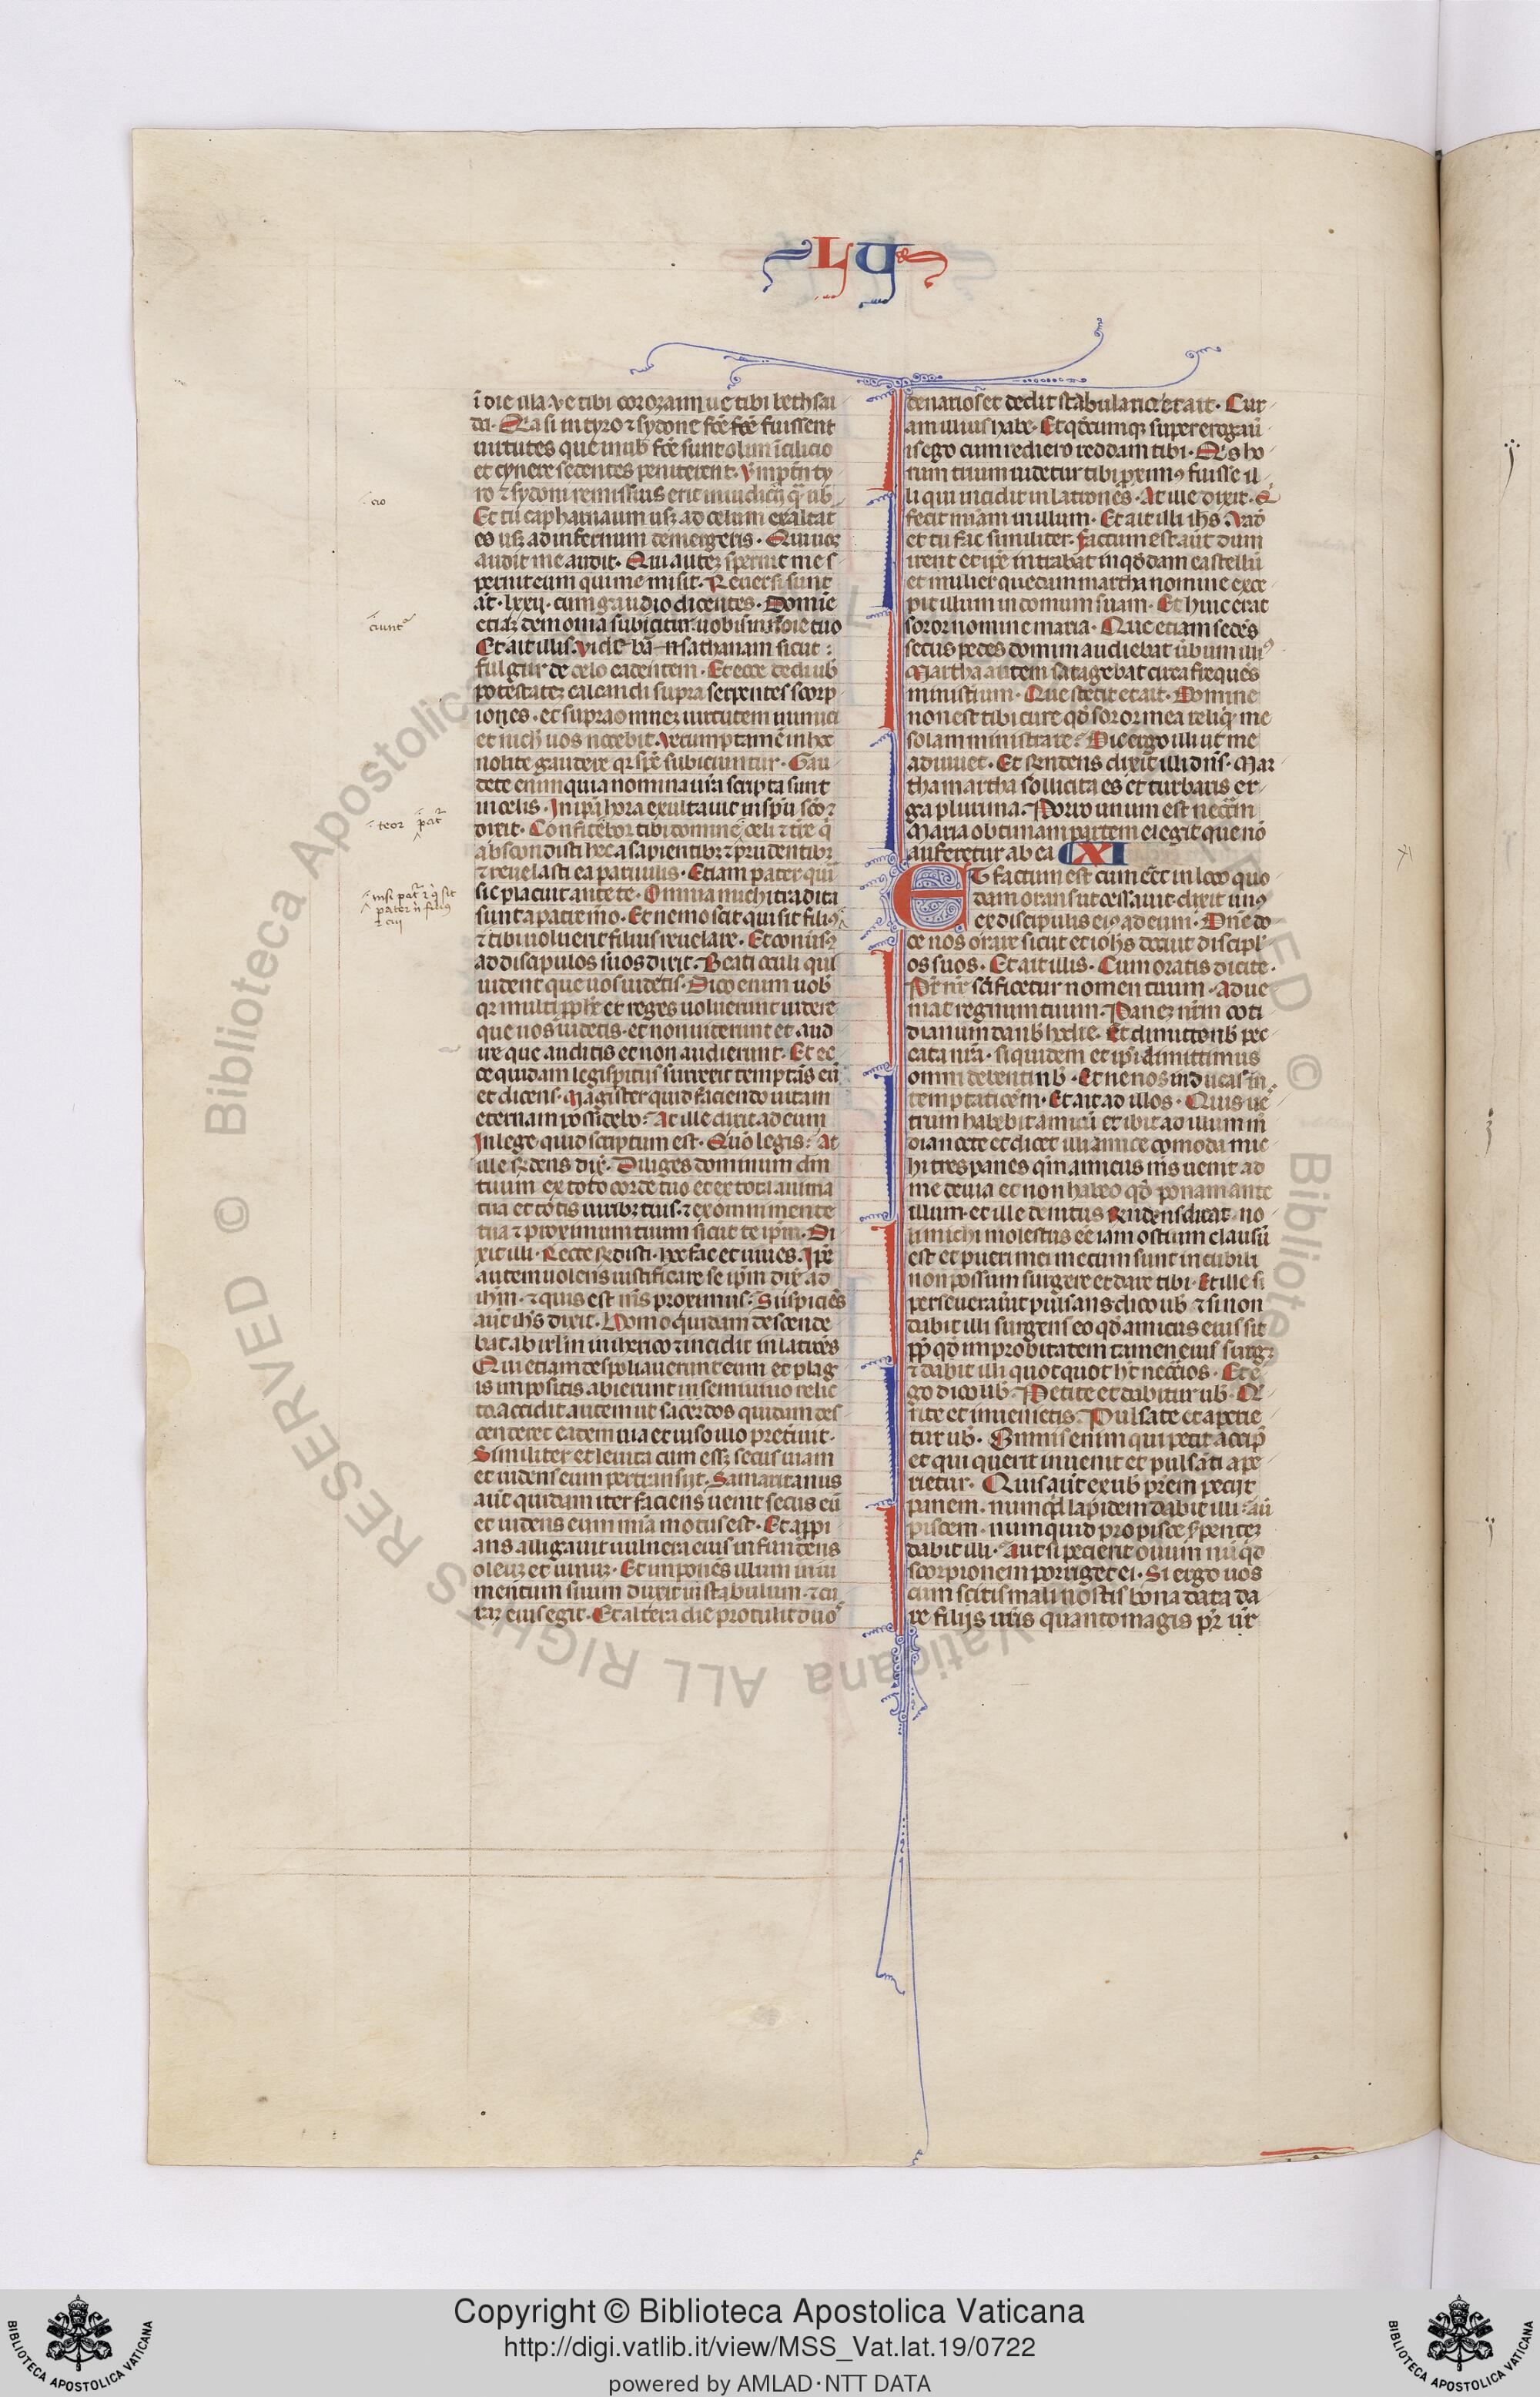 LV
ī die illa. ve tibi corozaim ue tibi bethsai
da. Q̄a si in tyro ⁊ sydone fc̄e fc̄e fuissent
uirtutes que in uob̄ fc̄e sunt olim ī cilicio
et cynere sedentes peniterent. Vm̄ptn̄ ty
ro ⁊ sydoni remissius erit in iudicij q̄ ub̄
cio
Et tu capharnaum usꝫ ad celum exaltat
es usꝫ ad infernum demergeris. Qui uos
audit me audit. Qui auteꝫ spernit me s
pernit eum qui me misit. Reuersi sunt
āt. lxxij. cum gaudio dicentes. Domīe
etiaꝫ demonia subicitur nobis in noīe tuo
ciunt᷑
Et ait illis. vide bā n sathanam sicut
fulgur de celo cadentem. Et ecce dedi ub̄
potestateꝫ calcandi supra serpentes scorp
iones. et supra omneꝫ uirtutem inimici
et nich̄ uos nocebit. Verumptamē in hoc
nolite gaudere qꝛ sp̄e subiciuntur. Gau
dete enim quia nomina ur̄a scripta sunt
in celis. In ip̄a hora exultauit in sp̄u sc̄o ⁊
dixit. Confitebor tibi domine celi ⁊ tr̄e q̄
teor pat᷑
abscondisti hec a sapientibꝫ ⁊ prudentibꝫ
⁊ reuelasti ea paruulis. Etiam pater quī
sic placuit ante te. Omnia michi tradita
sunt a patre mo. Et nemo scit qui sit filiꝰ
nisi pat᷑ ⁊ q̄s sit
pater n̄ filiꝰ
⁊ cui
⁊ tibi uoluerit filius reuelare. Et conuersꝰ
ad discipulos suos dixit. Beati oculi qui
uident que uos uidetis. Dico enim uob̄
qꝛ multi ꝓph̄e et reges uoluerunt uidere
que uos uidetis. et non uiderunt et aud
ire que auditis et non audierunt. Et ec
ce quidam legisperitus surrexit temptās eū
et dicens. Magister quid faciendo uitam
eternam possidebo. At ille dixit ad eum
In lege quid scriptum est. Quō legis. At
ille r̄ndens dix̄. Diliges dominum dm̄
tuum ex toto corde tuo et ex tota anima
tua et totis uiribꝫ tuis. ⁊ ex omni mente
tua ⁊ proximum tuum sicut te ip̄m. Di
xit illi. Recte r̄ndisti. hoc fac et uiues. Ip̄e
autem uolens iustificare se ip̄m dix̄ ad
ih̄m. ⁊ quis est m̄s proximus. Suspiciēs
aūt ih̄s dixit. Homo quidam descende
bat ab irl̄m in iherico ⁊ incidit in latrōes
Qui etiam despoliauerunt eum et plag
is impositis abierunt in semiuiuo relic
to. Accidit autem ut sacerdos quidam des
cenderet eadem uia et uiso illo preteriuit.
Similiter et leuita cum esꝫ secus uiam
et uidens eum pertransijt. Samaritanus
aūt quidam iter faciens uenit secus eū
et uidens eum mīa motus est. Et appropi
ans alligauit uulnera eius infundens
oleuꝫ et uinuꝫ. Et imponēs illum in iu
mentum suum duxit in stabulum. ⁊ cu
raꝫ eius egit. Et altera die protulit duoˢ
denarios et dedit stabulario. et ait. Cur
am illius habe. Et qd̄cumqꝫ supererogaū
is ego cum rediero reddam tibi. Q̄s ho
rum trium uidetur tibi proximꝰ fuisse il
li qui incidit in latrones. At ille dixit. Q̄
fecit mīam in illum. Et ait illi ih̄s. Vad̄
et tu fac similiter. Factum est aūt dum
irent et ip̄e intrabat in qd̄dam castellū
et mulier quedam martha nomine exce
pit illum in domum suam. Et huic erat
soror nomine maria. Que etiam sedēs
secus pedes domini audiebat ūbum illiꝰ
Martha autem satagebat circa freqūes
ministrium. Que stetit et ait. Domine
non est tibi cure qd̄ soror mea reliq̄t me
solam ministrare. Dic ergo illi ut me
adiuuet. Et r̄ndens dixit illi dn̄s. Mar
tha martha sollicita es et turbaris er
ga plurima. Porro unum est necc̄m
Maria obtimam partem elegit que nō
auferetur ab ea CXI
ET factum est cum eēt in loco quo
dam orans ut cessauit dixit unꝰ
ex discipulis eiꝰ ad eum. Dn̄e do
ce nos orare sicut et ioh̄s docuit discipl̄
os suos. Et ait illis. Cum oratis dicite.
Pr̄ nr̄ sc̄ificetur nomen tuum. Adue
niat regnum tuum. Paneꝫ nr̄m coti
dianum da nb̄ hodie. Et dimitte nb̄ pec
cata nr̄a. siquidem et ip̄i dimittimus
omni debenti nb̄. Et ne nos inducas in
temptatiōem. Et ait ad illos. Quis ue
strum habebit amicū et ibit ad illum m̄
dia nocte et dicet illi amice comoda mic
hi tres panes qm̄ amicus m̄s uenit ad
me de uia et non habeo qd̄ ponam ante
illum. et ille deintus r̄ndens dicat no
li michi molestus eē iam ostium clausū
est et pueri mei mecum sunt in cubili
non possum surgere et dare tibi. Et ille si
perseuerauit pulsans dico ub̄ ⁊ si non
dabit illi surgens eo qd̄ amicus eius sit
ꝓp̄ qd̄ improbitatem tamen eius surgꝫ
⁊ dabit illi quotquot hꝫ necc̄ios. Et e
go dico ub̄. Petite et dabitur ub̄. Q̄
rite et inuenietis. Pulsate et aperie
tur ub̄. Omnis enim qui petit accip̄
et qui querit inuenit et pulsāti ape
rietur. Quis aūt ex ub̄ pr̄em petijt
panem. numqd̄ lapidem dabit illi. aū
piscem. numquid pro pisce s̄penteꝫ
dabit illi. Aut si petierit ouum nūqd̄
scorpionem porriget ei. Si ergo uos
cum scitis mali nostis bona data da
re filijs ur̄is quanto magis pr̄ ur̄
Copyright © Biblioteca Apostolica Vaticana
http://digi.vatlib.it/view/MSS_Vat.lat.19/0722
powered by AMLAD·NTT DATA
BIBLIOTECA APOSTOLICA VATICANA
BIBLIOTECA APOSTOLICA VATICANA
© Biblioteca Apostolica Vaticana ALL RIGHTS RESERVED